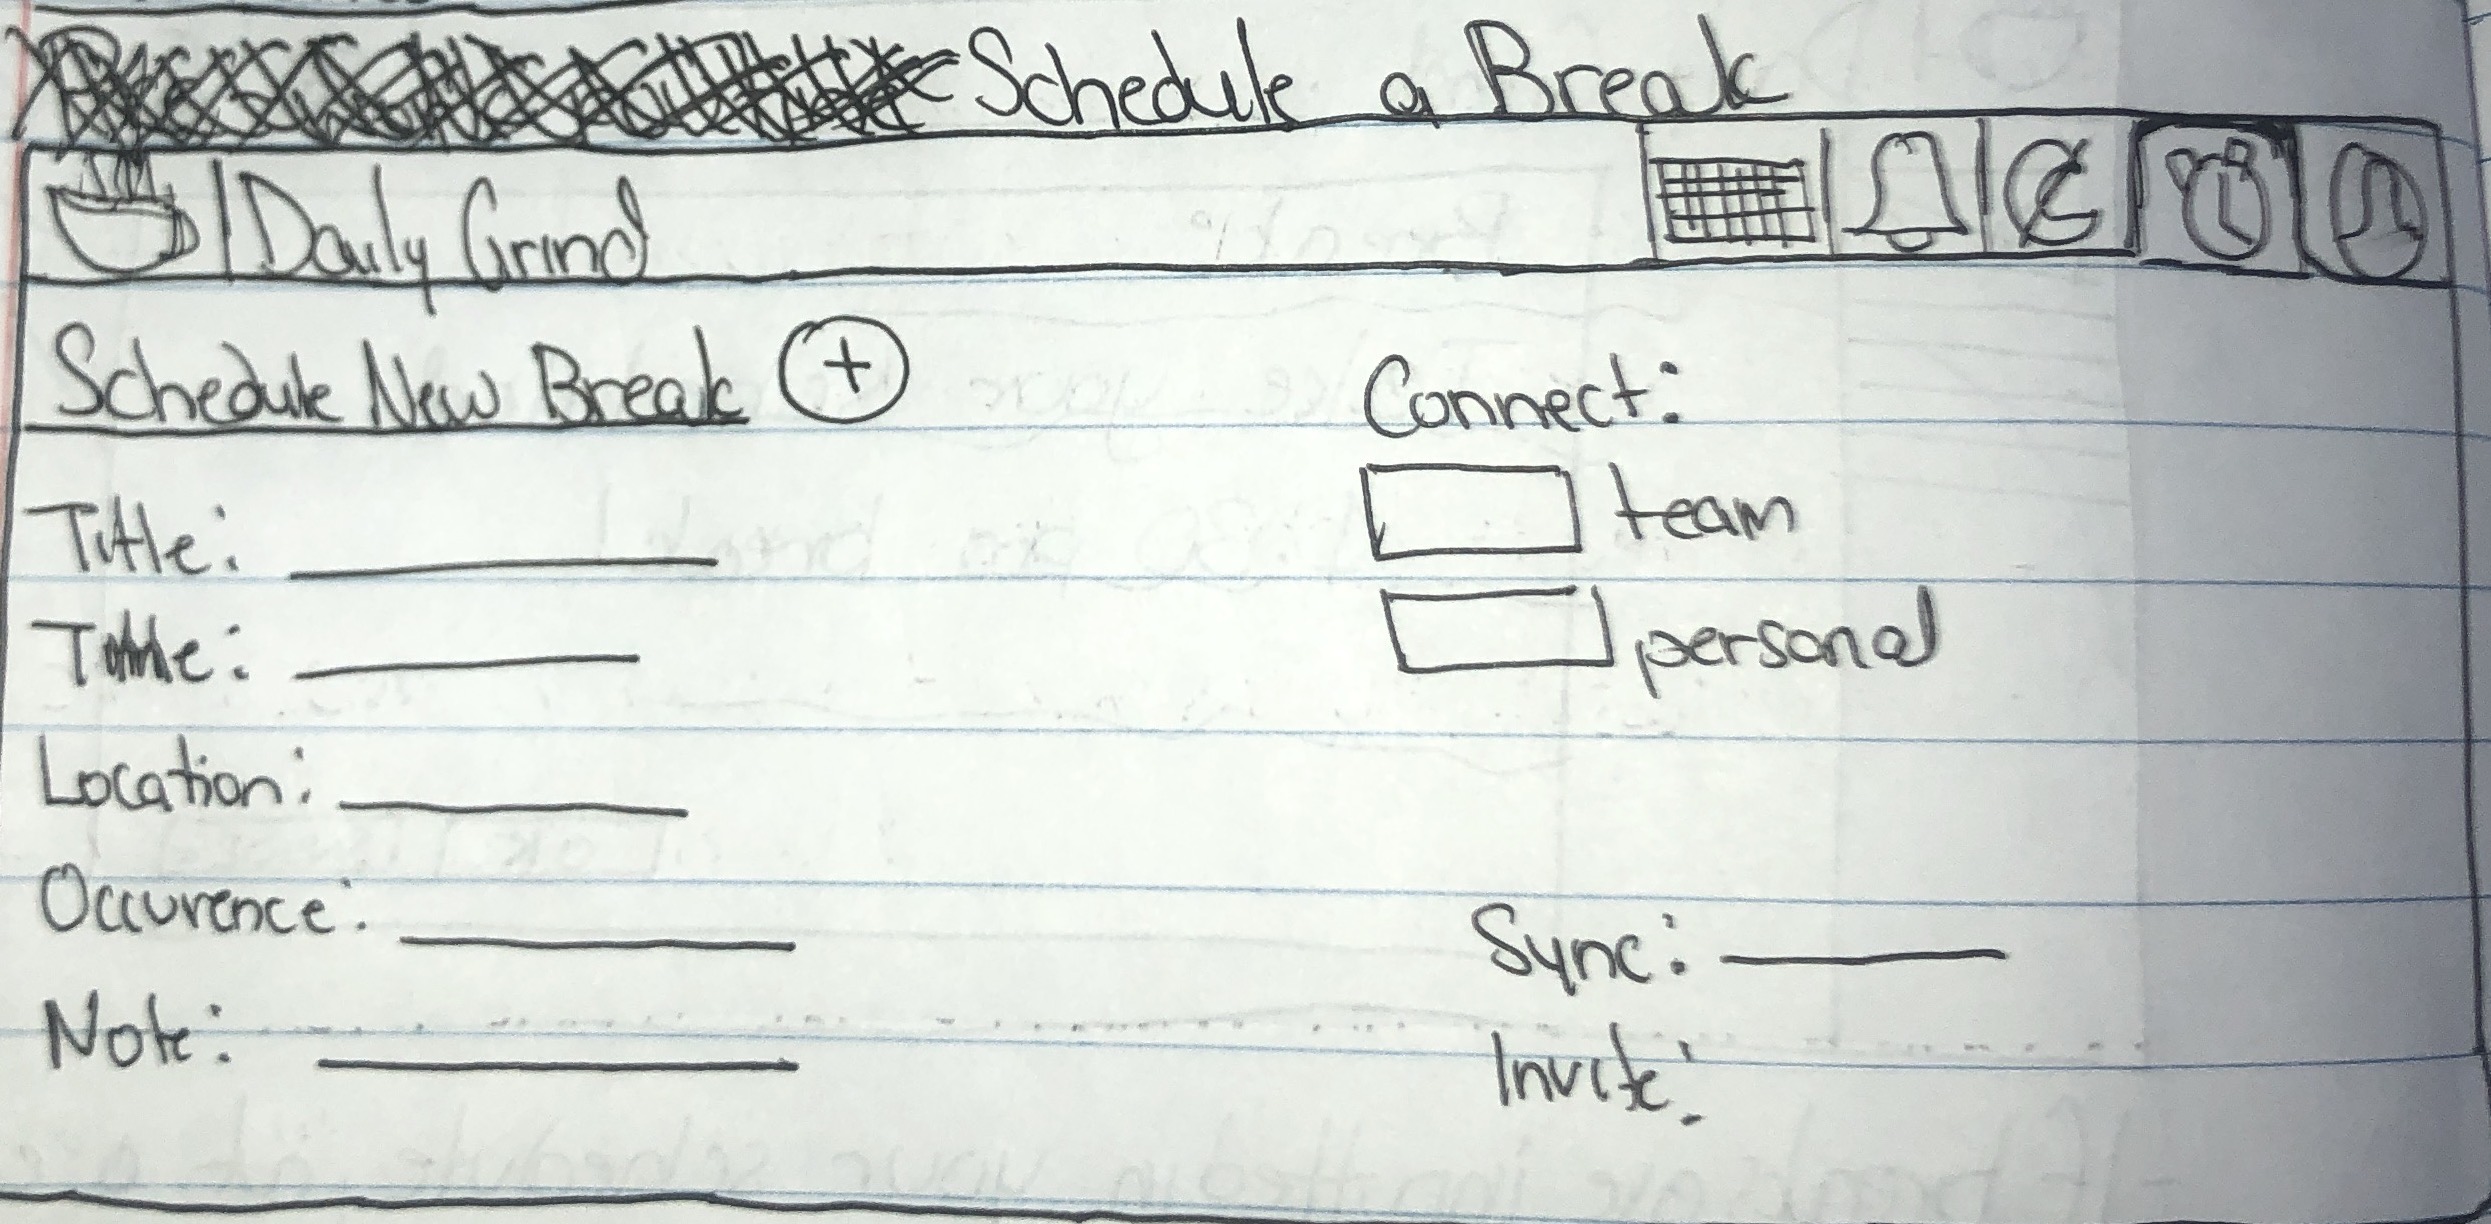 Schedule a Break
Daily Grind
Schedule New Break +
Title:
Time:
Location:
Occurence:
Note:
Connect:
team
personal
Sync:
Invite: